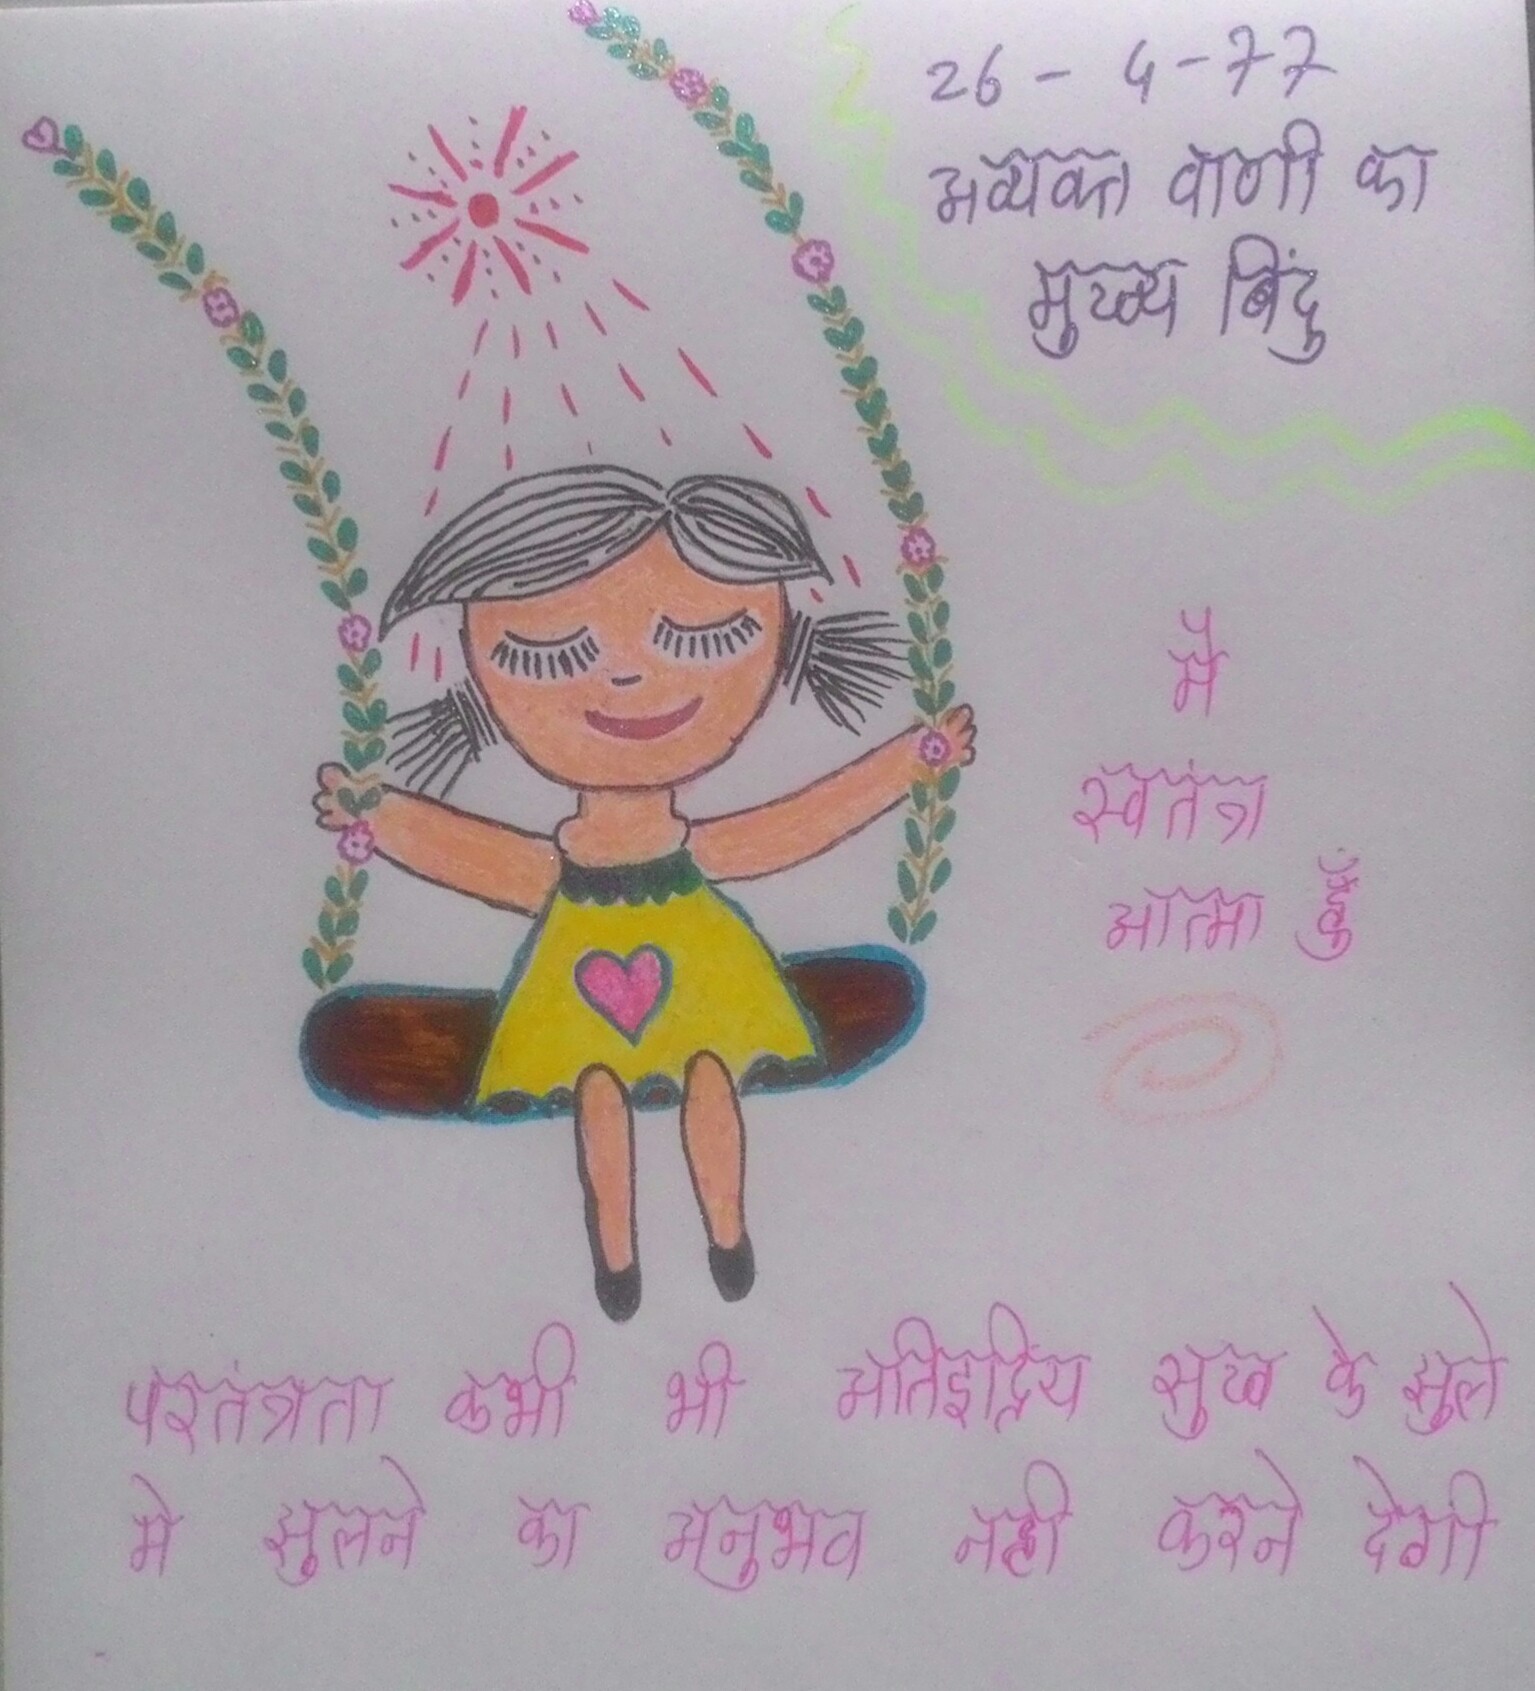 26 - 4 - 77
अव्यक्त वाणी का
मुख्य बिंदु
मै
स्वतंत्र
आत्मा हूँ
परतंत्रता कभी भी अतिइद्रिय सुख के झुले
मे झुलने का अनुभव नही करने देगी